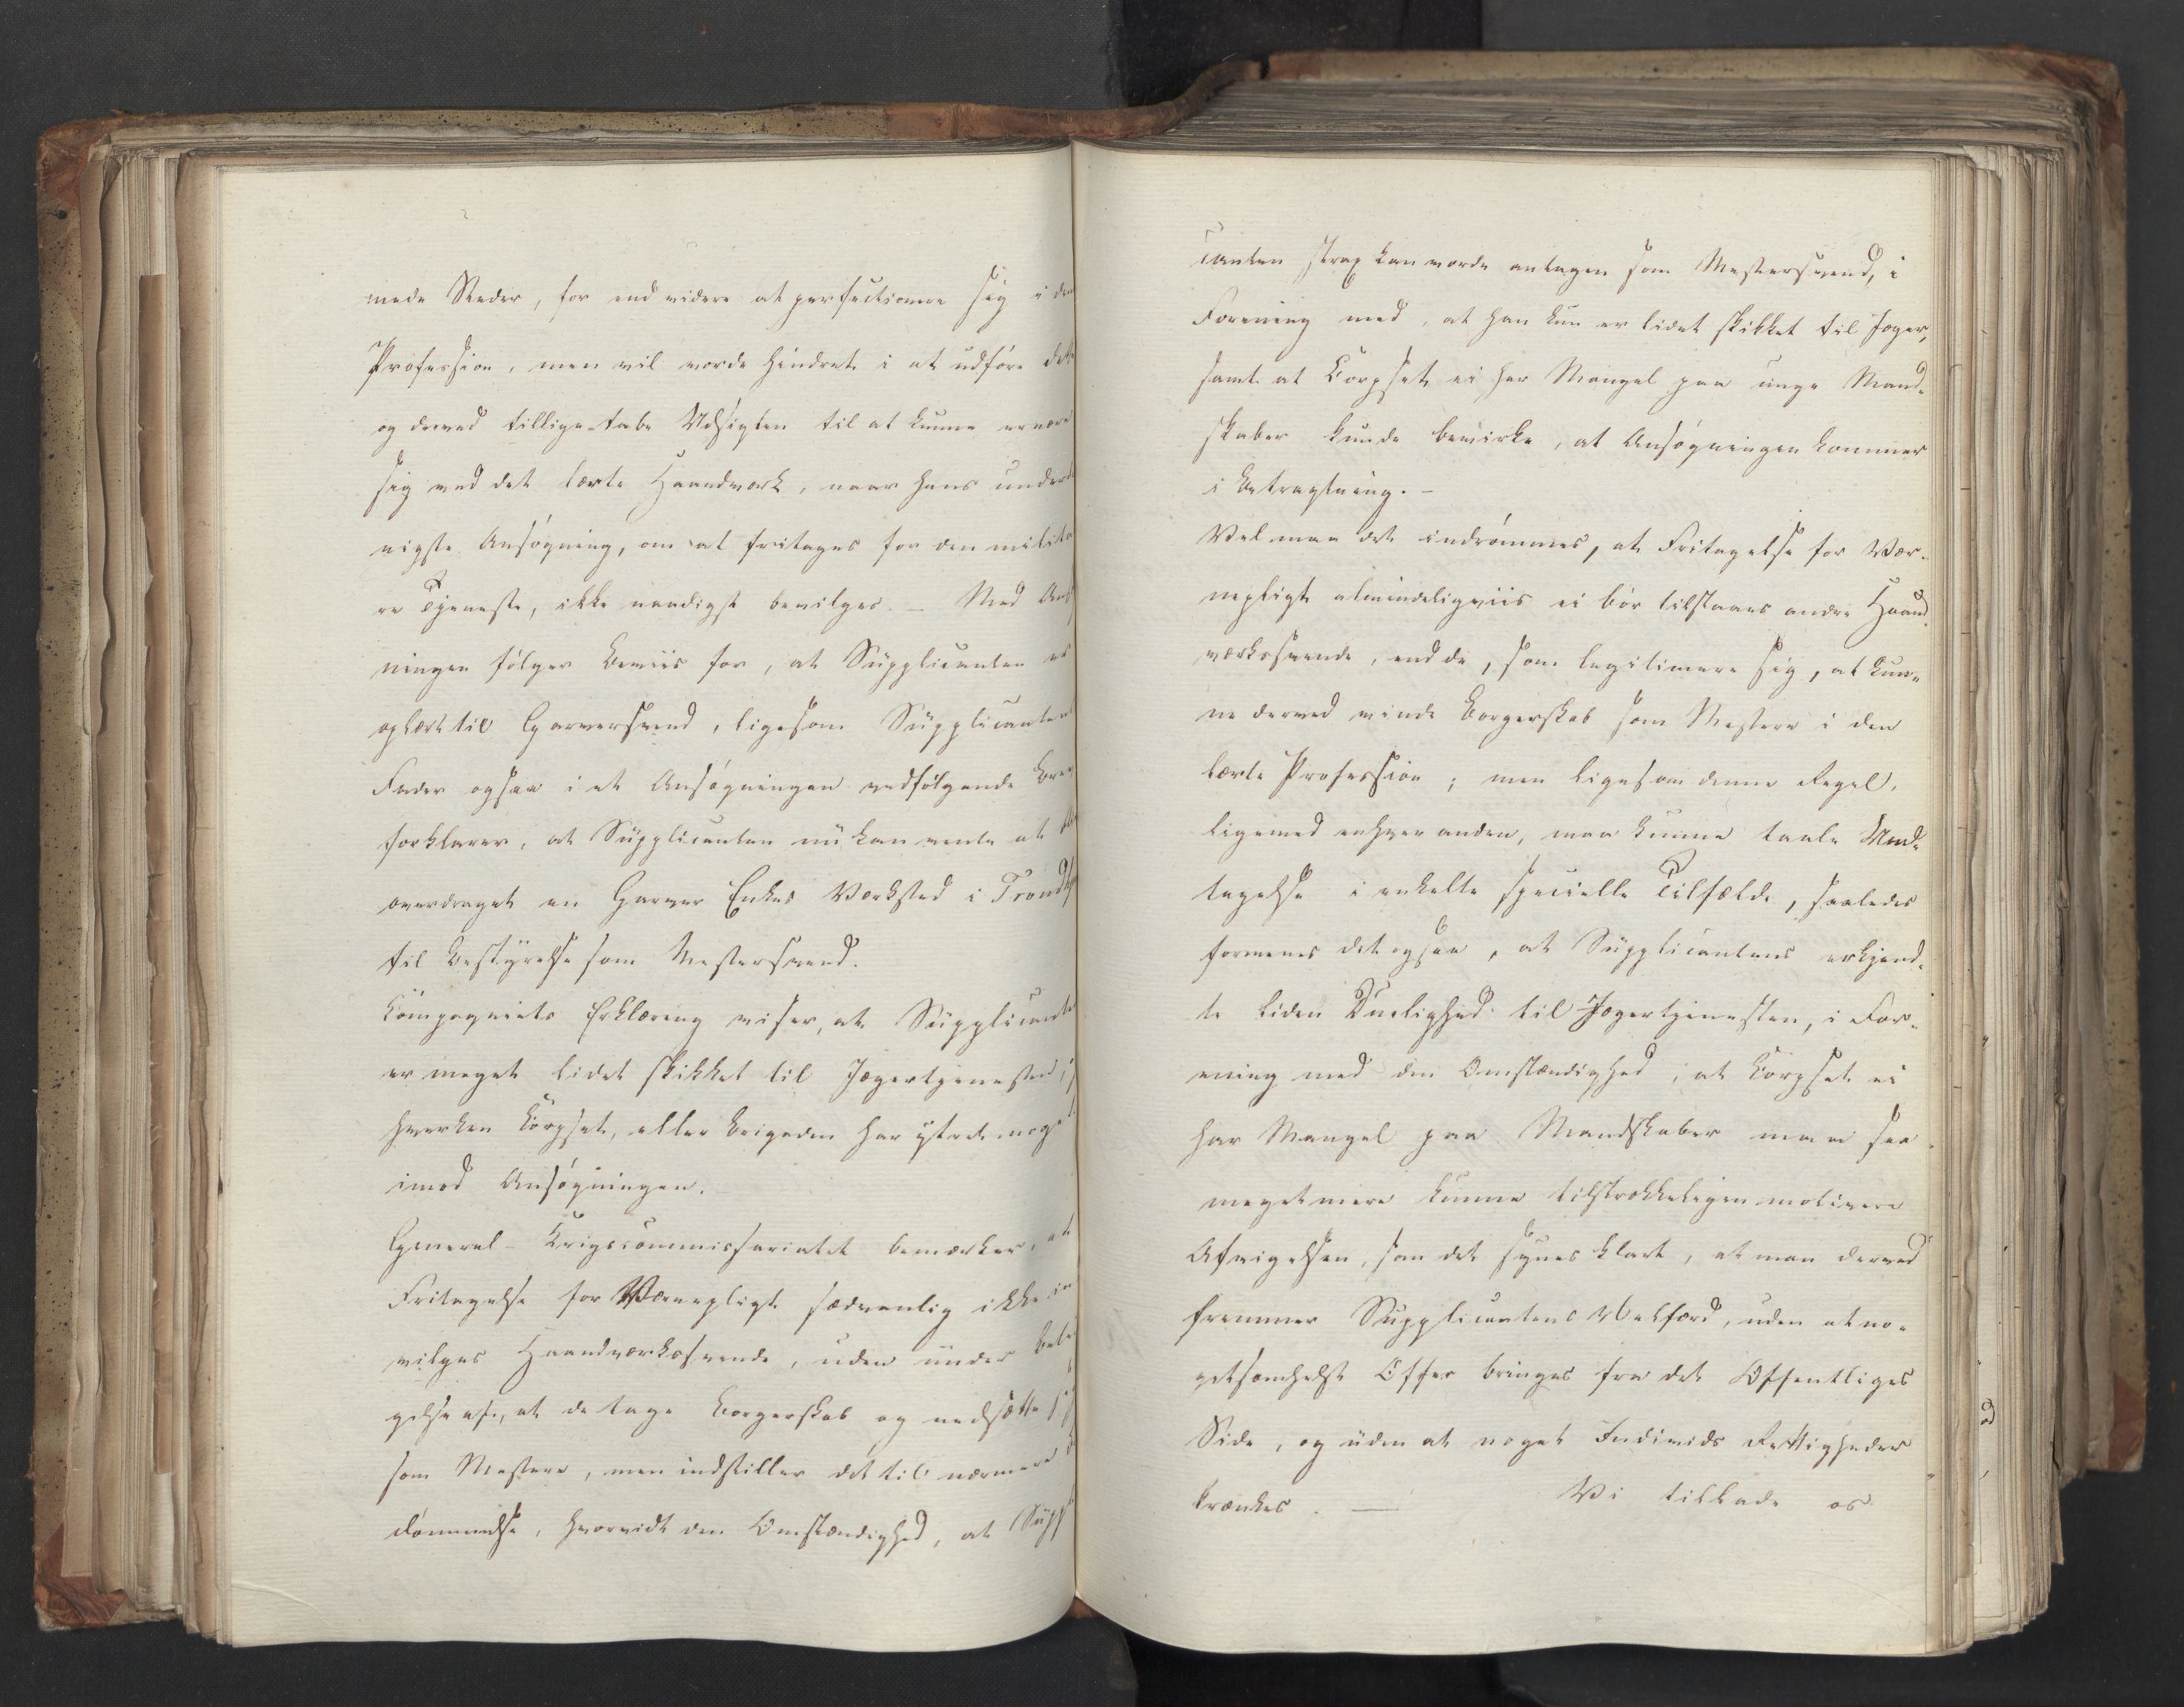 mede Steder, for end videre at perfectionere sig i den
Profession, men vil vorde hindret i at udføre dette
og derved tillige tabe Udsigten til at kunne ernære
sig ved det lærte Haandværk, naar hans underd
nigste Ansøgning, om at fritages for den militæ
re Tjeneste, ikke naadigst bevilges. – Med Ansø
ningen følger Beviis for, at Supplicanten er
oplært til Garversvend, ligesom Supplicanten
Fader ogsaa i et Ansøgningen vedfølgende Brev
forklarer, at Supplicanten nu kan vente at
overdraget en Garver Enkes Værksted i Trondhj
til Bestyrelse som Mestersvend.
Compagniets Erklæring viser, at Supplicanten
er meget lidet skikket til Jægertjenesten,
hverken Corpset, eller Brigaden har ytret noget
imod Ansøgningen.
General-Krigscommissariatet bemærker, at
Fritagelse for Værnepligt sædvanlig ikke
vilges Haandværkssvende, uden under Betin
gelse af, at de tage Borgerskab og nedsætte sig
som Mestere, men indstiller det til nærmere
dømmelse, hvorvidt den Omstændighed, at Suppl
canten strax kan vorde antagen som Mestersvend, i
Forening med, at han kun er lidet skikket til Jæger,
samt at Corpset ei har Mangel paa unge Mand-
skaber kunde bevirke, at Ansøgningen kommer
i Betragtning. –
Vel maa det indrømmes, at Fritagelse for Vær-
nepligt almindeligviis ei bør tilstaaes andre Haand-
værkssvende, end de, som legitimere sig, at kun-
ne derved vinde Borgerskab som Mestere i den
lærte Profession; men ligesom denne Regel,
ligemed enhver anden, maa kunne taale Und-
tagelse i enkelte specielle Tilfælde, saaledes
formenes det ogsaa, at Supplicantens erkjend-
te liden Duelighed til Jægertjenesten, i For-
ening med den Omstændighed, at Corpset ei
har Mangel paa Mandskaber maa saa
meget mere kunne tilstrækkeligen motivere
Afvigelsen, som det synes klart, at man derved
fremmer Supplicantens Velfærd, uden at no-
getsomhelst Offer bringes fra det Offentliges
Side, og uden at noget Individs Rettigheder
krænkes. — Vi tillade os